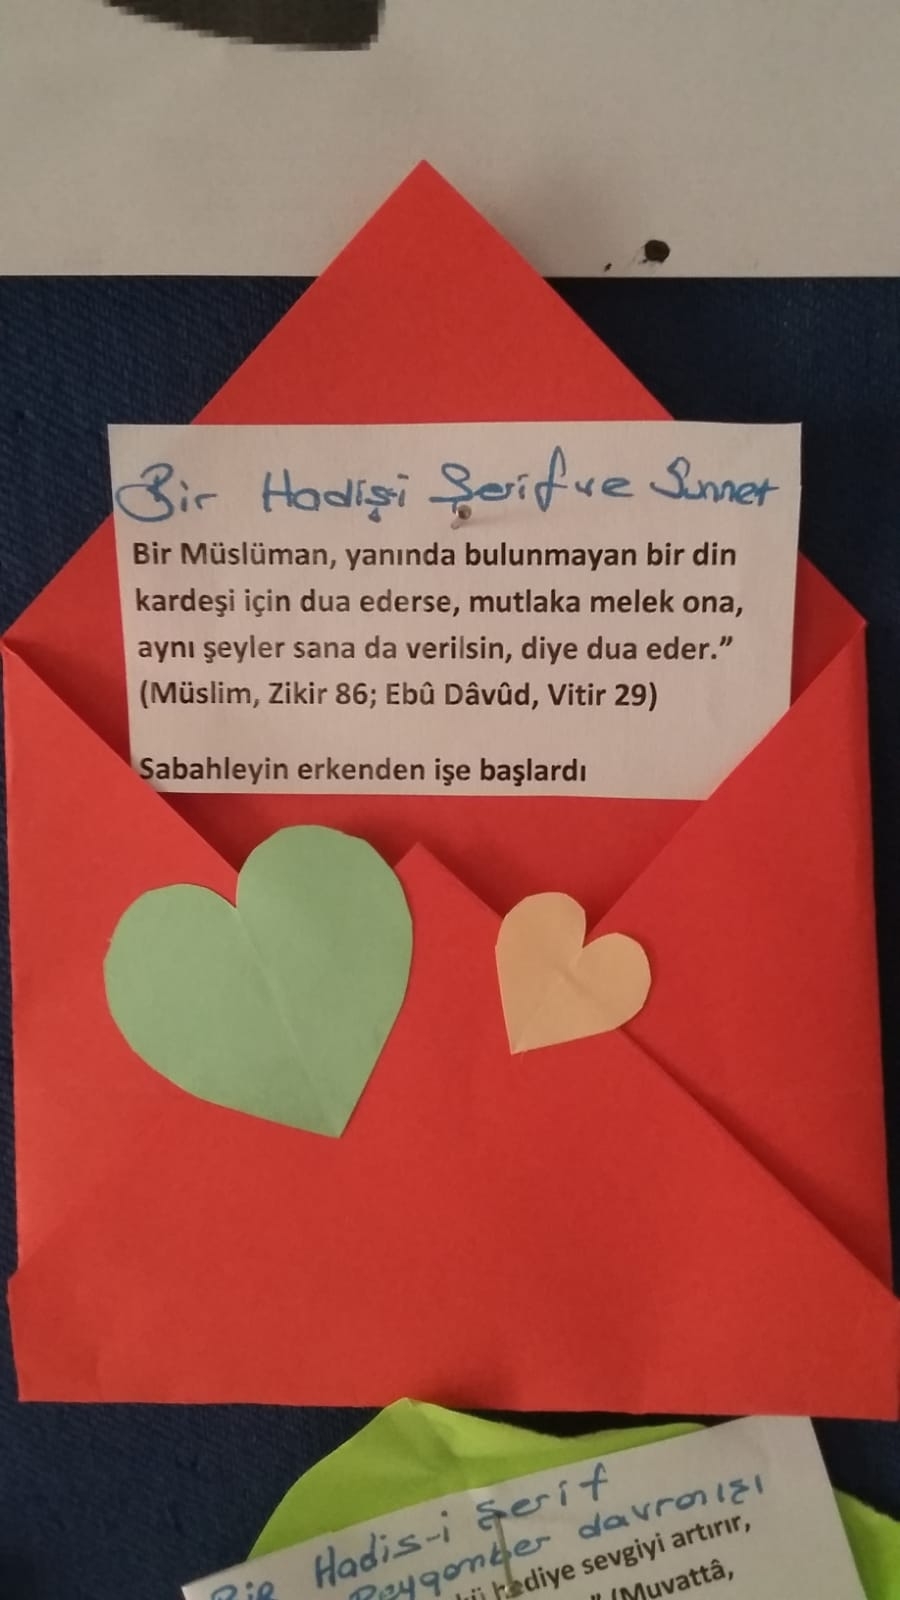 Bir Hadisşi Şerif ve Sünnet
Bir Müslüman, yanında bulunmayan bir din
kardeşi için dua ederse, mutlaka melek ona,
aynı şeyler sana da verilsin, diye dua eder.”
(Müslim, Zikir 86; Ebû Dâvûd, Vitir 29)
Sabahleyin erkenden işe başlardı
Bir Hadis-i Şerif
Peygamber davranışı
hediye sevgiyi artırır,
” (Muvattâ,